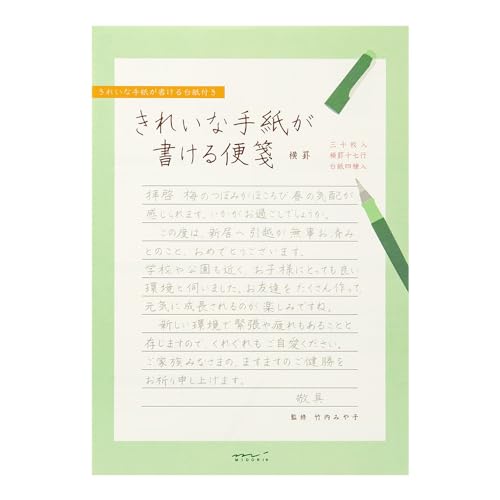 きれいな手紙が書ける台紙付き
きれいな手紙が
書ける便箋 横罫
三十枚入
横罫十七行
台紙四種入
拝啓 梅のつぼみがほころび春の気配が
感じられます。いかがお過ごしでしょうか。
この度は、新居へ引越が無事お済み
とのこと、おめでとうございます。
学校や公園も近く、お子様にとっても良い
環境と伺いました。お友達をたくさん作って、
元気に成長されるのが楽しみですね。
新しい環境で緊張や疲れもあることと
存じますので、くれぐれもご自愛ください。
ご家族みなさまの、ますますのご健勝を
お祈り申し上げます。
敬具
監修 竹内みや子
MIDORI